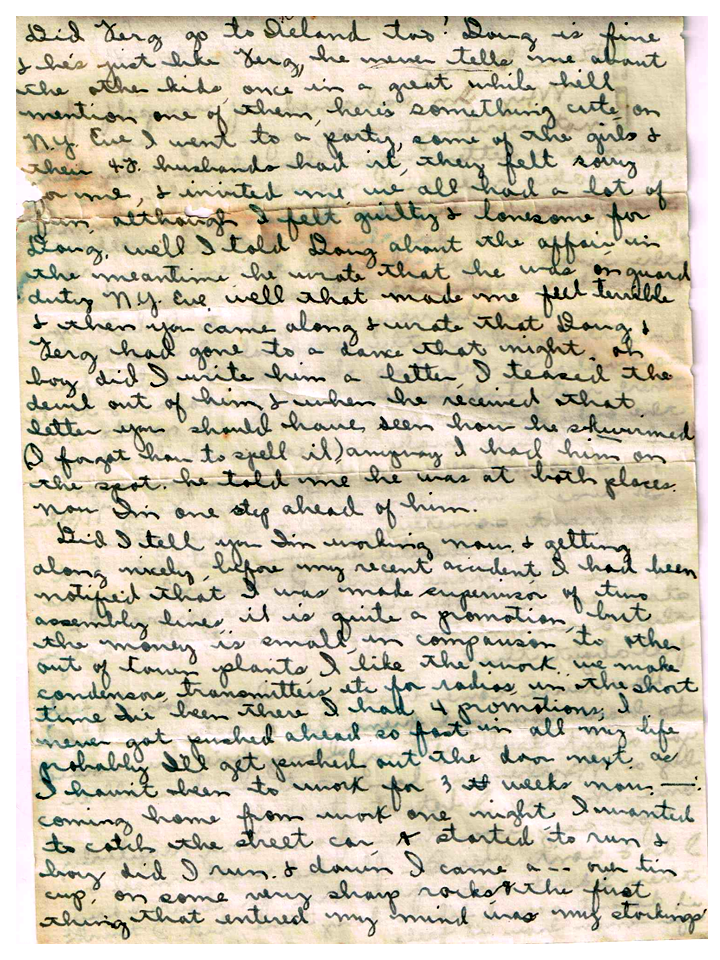 Did Ferg go to Ireland too? Doug is fine
& he's just like Ferg, he never tells me about
the other kids, once in a great while he'll
mention one of them, here's something cute, on
N.Y. Eve I went to a party, some of the girls &
their 4F. husbands had it, they felt sorry
for me, & invited me, we all had a lot of
fun, although I felt guilty & lonesome for
Doug, well I told Doug about the affair, in
the meantime he wrote that he was on guard
duty N.Y. Eve, well that made me feel terrible
& then you came along & wrote that Doug &
Ferg had gone to a dance that night, oh
boy did I write him a letter, I teased the
devil out of him, & when he received that
letter you should have seen how he skwirmed
(I forgot how to spell it) anyway I had him on
the spot. he told me he was at both places.
now I'm one step ahead of him.
Did I tell you I'm working now & getting
along nicely, before my recent accident I had been
notified that I was made supervisor of two
assembly lines, it is quite a promotion, but
the money is small, in comparison to other
out of town plants, I like the work, we make
condensors, transmitters, etc for radios, in the short
time I've been there I had 4 promotions, I
never got pushed ahead so fast in all my life
probably I'll get pushed out the door next, as
I havn't been to work for 3 weeks now, —:
coming home from work one night, I wanted
to catch the street car, & started to run &
boy did I run, & down I came a-- over tin
cup, on some very sharp rocks & the first
thing that entered my mind was my stockings